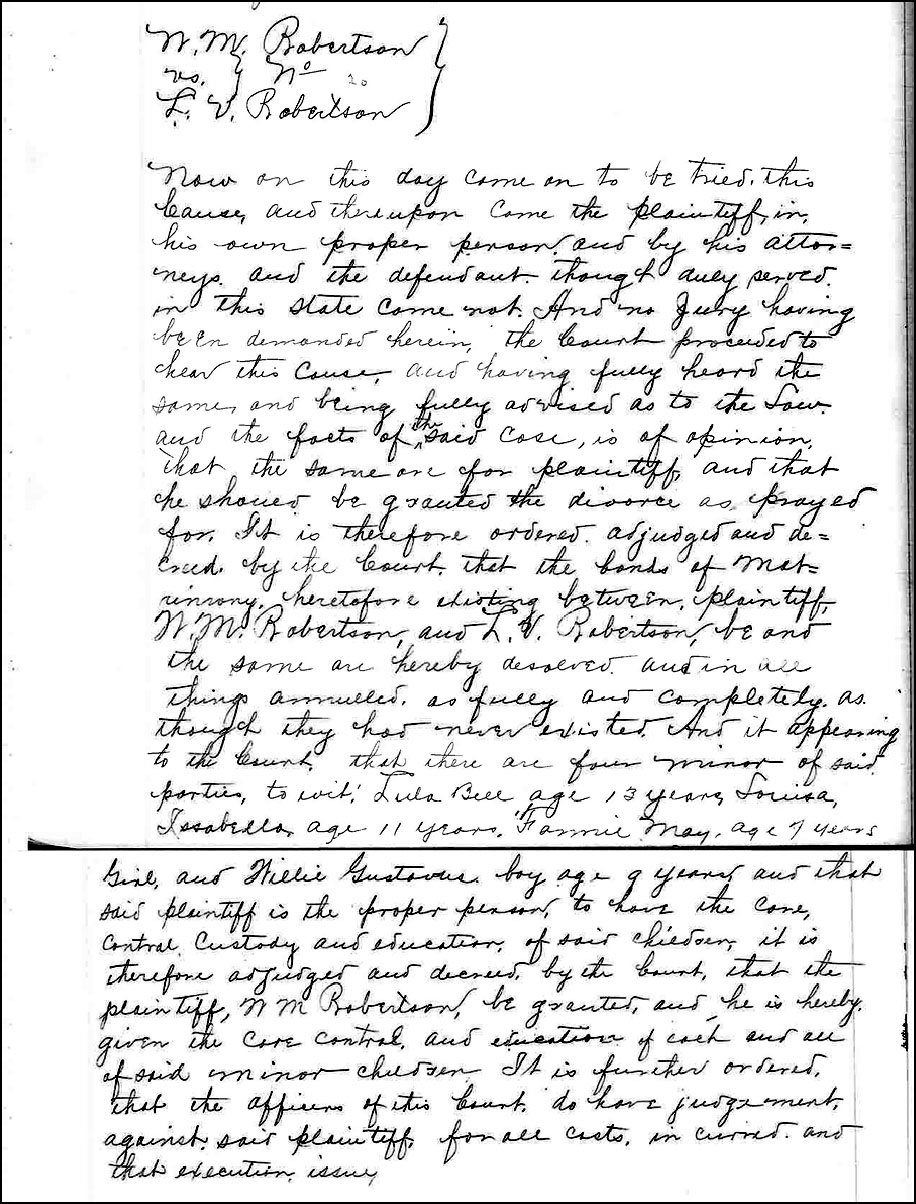 W. M. Robertson
vs. } No 20
L. V. Robertson
Now on this day come on to be tried. this
Cause, and thereupon come the plaintiff, in,
his own proper person, and by his attor=
neys. and the defendant. though duly served.
in this State come not. And no Jury having
been demanded herein, the Court proceeded to
hear this Cause, and having fully heard the
same, and being fully advised as to the Law.
and the facts of the said Case, is of opinion,
that the same are for plaintiff, and that
he should be granted the divorce as prayed
for. It is therefore ordered. adjudged and de=
creed. by the Court. that the bonds of Mat=
rimony, heretofore existing between, plaintiff,
W. M. Robertson, and L. V. Robertson, be and
the same are hereby desolved. and in all
things annulled. as fully and completely. as.
though they had never existed. And it appearing
to the Court, that there are four minor of said
parties, to wit; Lula Bell age 13 years, Louisa,
Issabella, age 11 years, Fannie May, age 7 years
Girl, and Willie Gustavus. boy age 9 years, and that
said plaintiff is the proper person, to have the Care,
Control, Custody and education, of said children, it is
therefore adjudged and decreed, by the Court, that the
plaintiff, W M Robertson, be granted, and he is hereby,
given the Care Control, and education of each and all
of said minor children It is further ordered,
that the officers of this Court, do have judgement,
against said plaintiff, for all costs, in curred. and
that execution, issue,